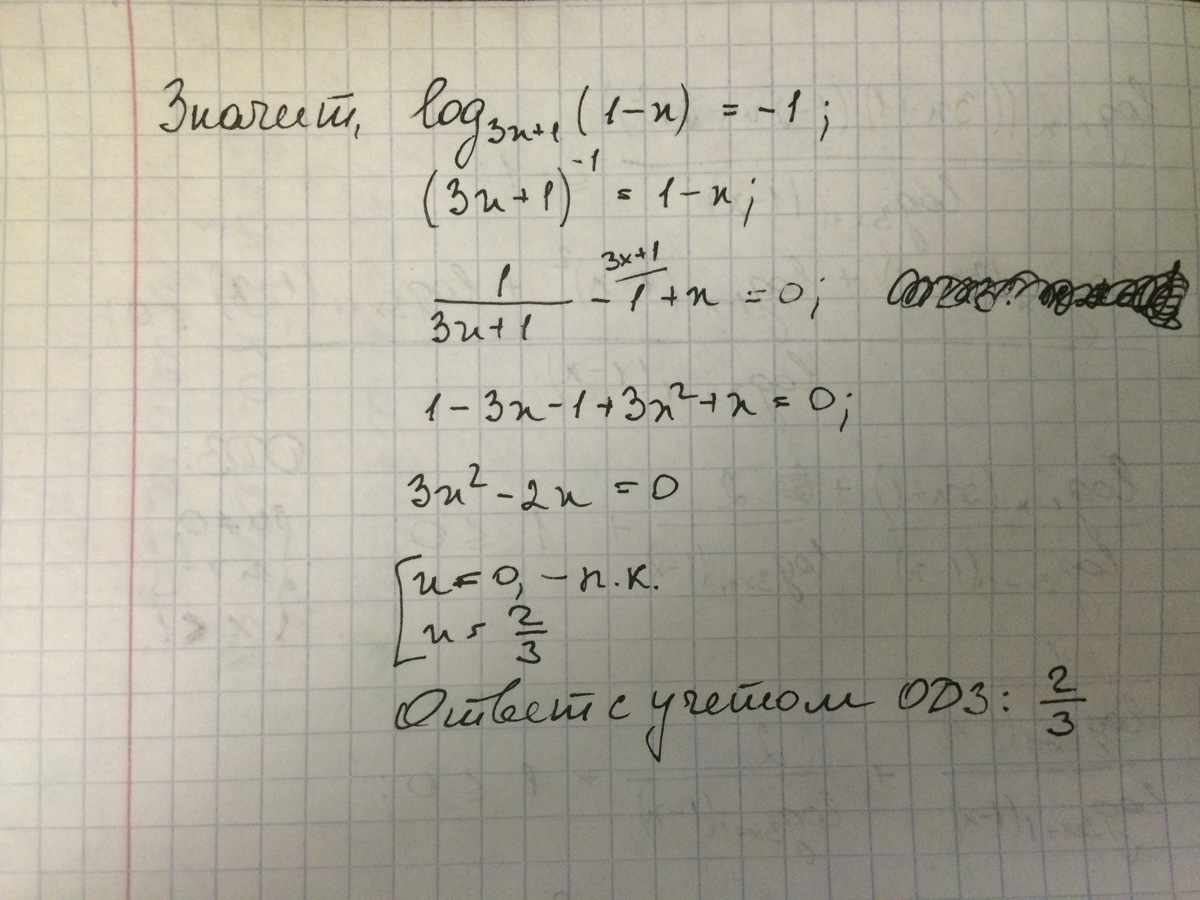 Значит, log₃ₓ₊₁(1-x) = -1;
(3x+1)⁻¹ = 1-x;
1/(3x+1) - 1 + x = 0; 3x+1
1-3x-1+3x²+x=0;
3x²-2x=0
[x=0, - п.к.
x=2/3
Ответ с учетом ОДЗ: 2/3